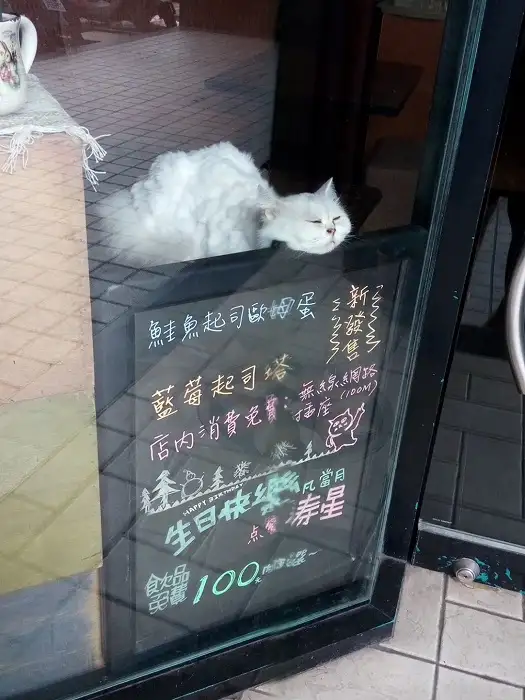 鮭魚起司歐姆蛋
新發售
藍莓起司塔
店內消費免費:無線網路(100M)
插座
HAPPY BIRTHDAY
生日快樂
凡當月
壽星
点餐
飲品
免費
100元